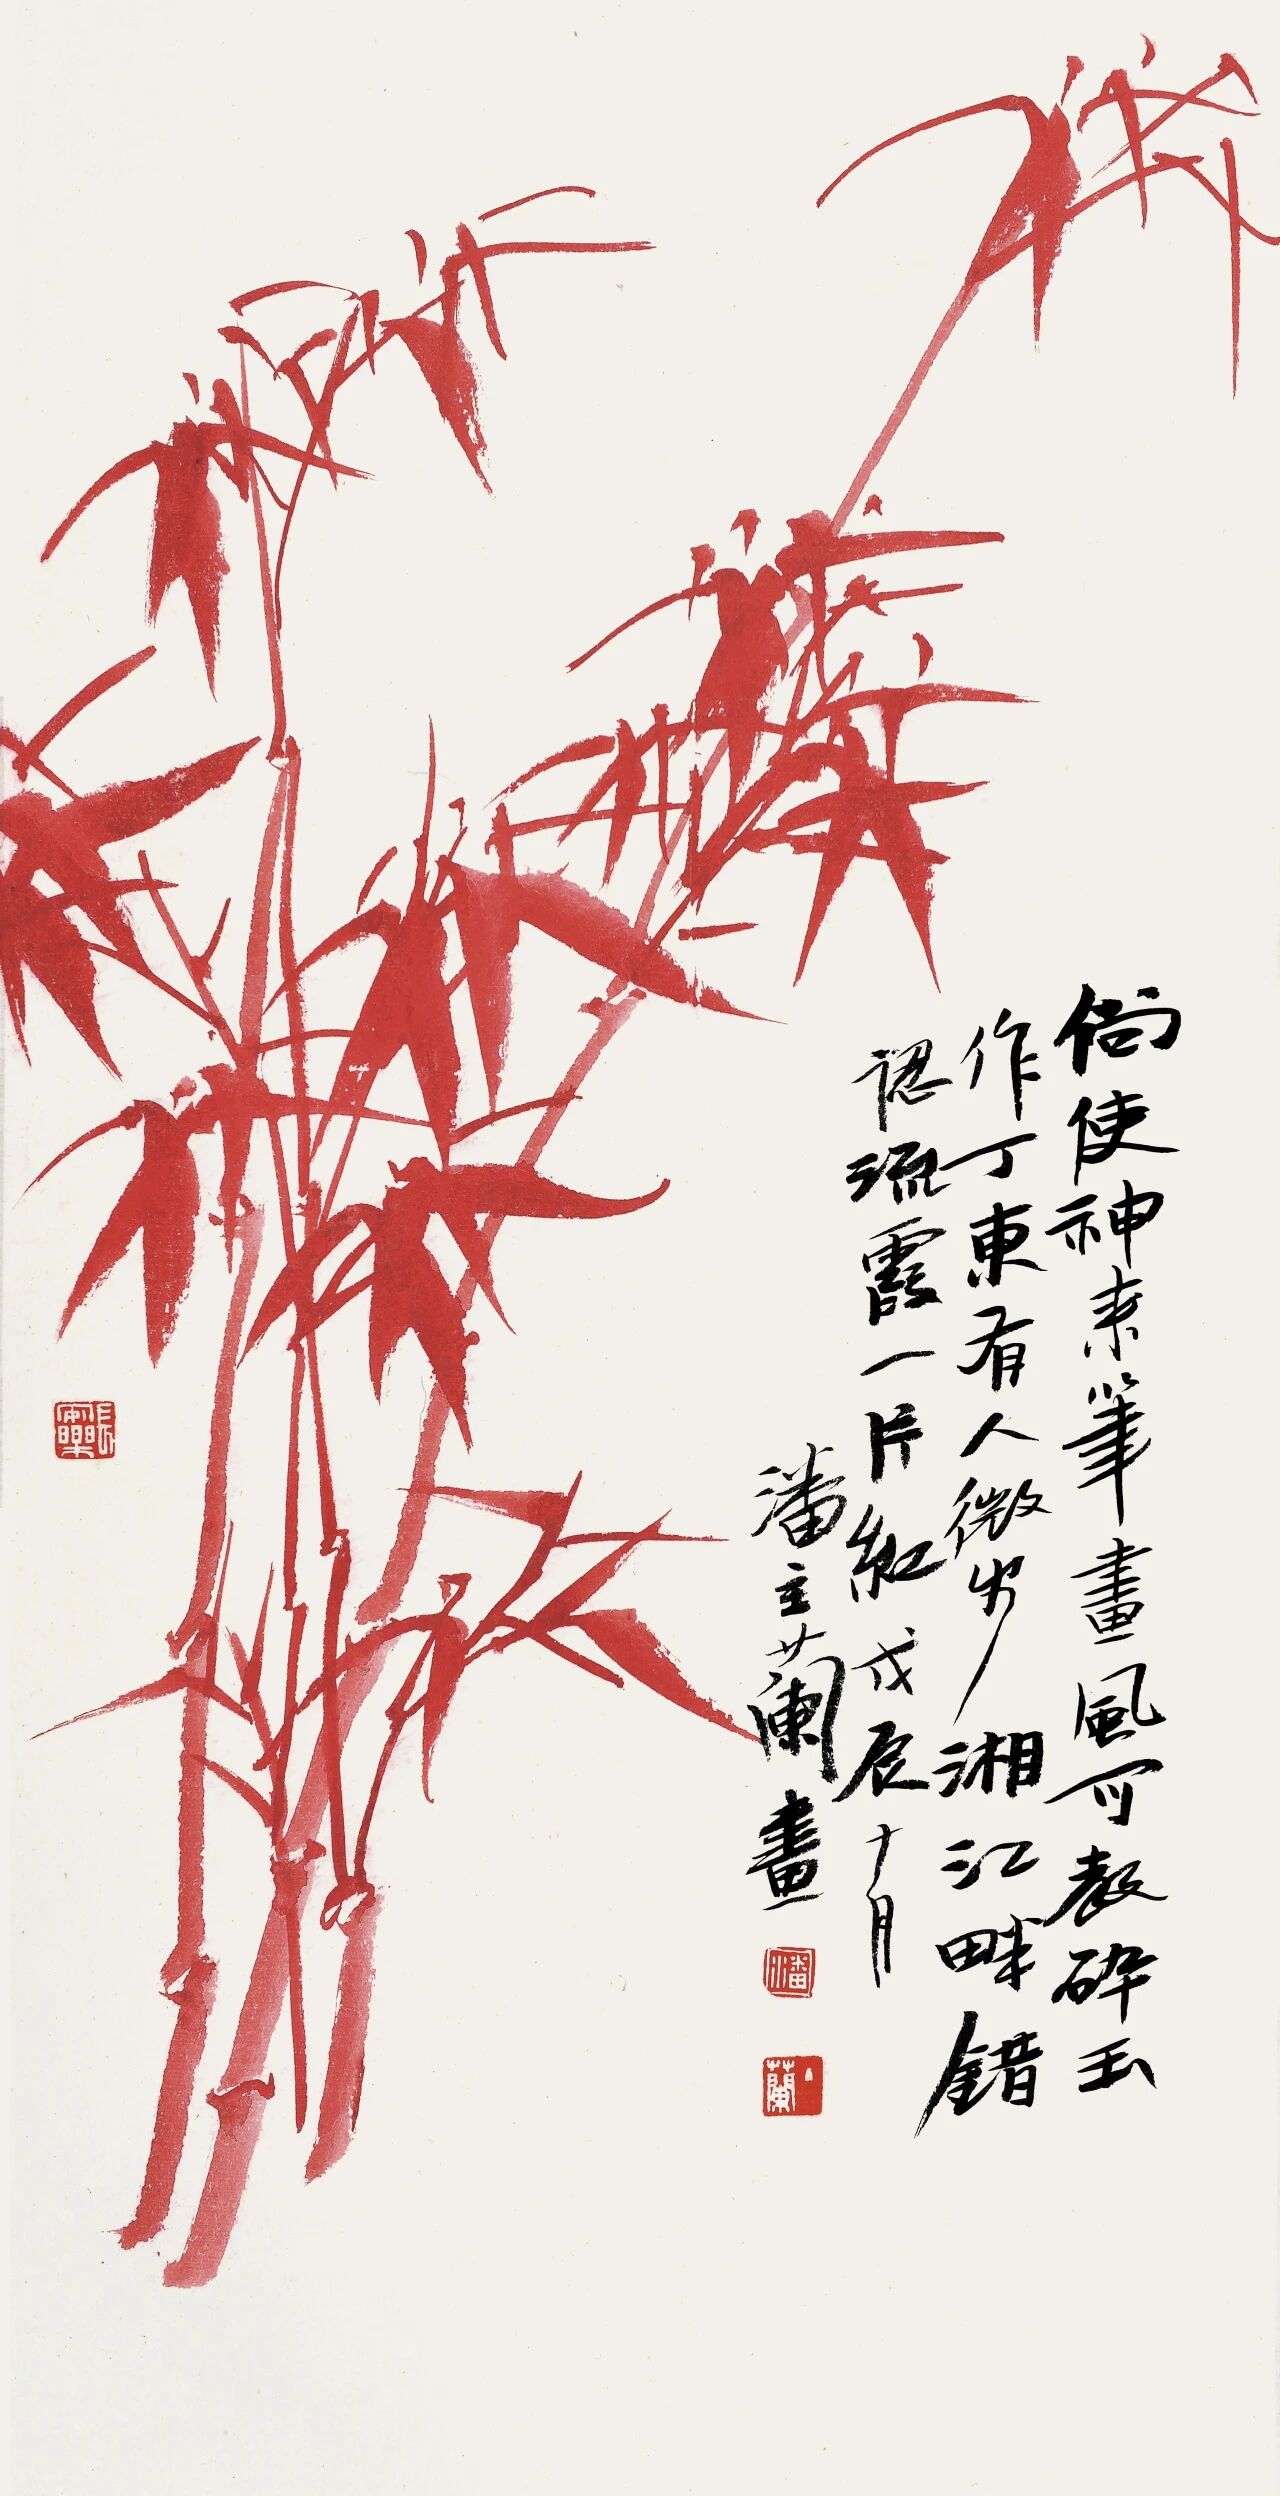 倘使神来筆畫風可教碎玉
作丁東有人微步湘江畔錯
認流霞一片紅戊辰十月
潘主蘭畫
潘
主蘭